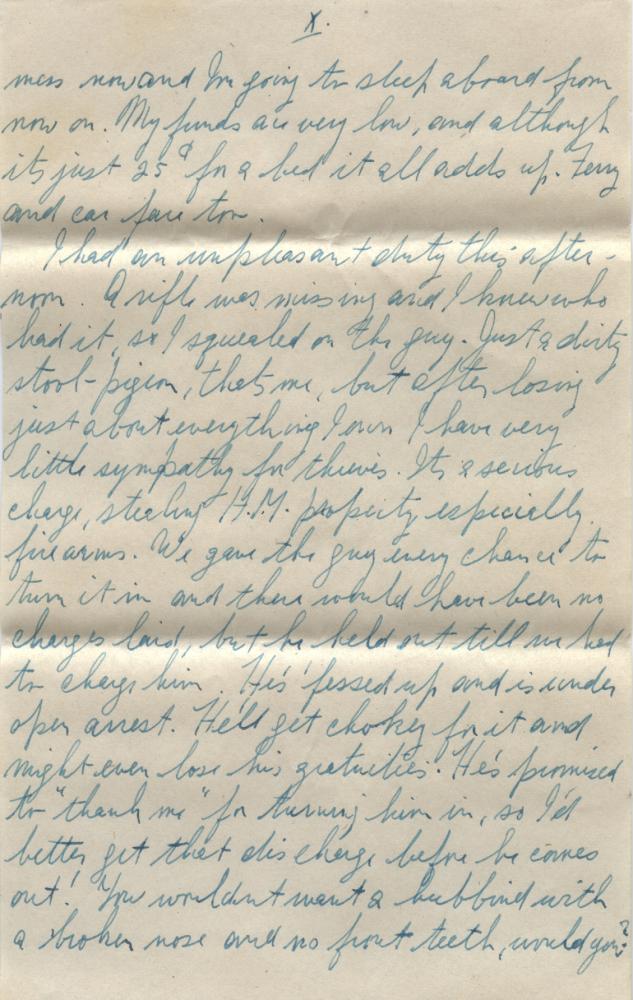 X.
mess now and I'm going to sleep aboard from
now on. My funds are very low, and although
its just 25¢ for a bed it all adds up. Ferry
and car fare too.
I had an unpleasant duty this after-
noon. A rifle was missing and I knew who
had it, so I squealed on the guy. Just a dirty
stool-pigeon, thats me, but after losing
just about everything I own I have very
little sympathy for thieves. Its a serious
charge, stealing H.M. property, especially
firearms. We gave the guy every chance to
turn it in and there would have been no
charges laid, but he held out till we had
to charge him. He's 'fessed up and is under
open arrest. He'll get chokey for it and
might even lose his gratuities. He's promised
to "thank me" for turning him in, so I'd
better get that discharge before he comes
out! You wouldn't want a hubbind with
a broken nose and no front teeth, would you?